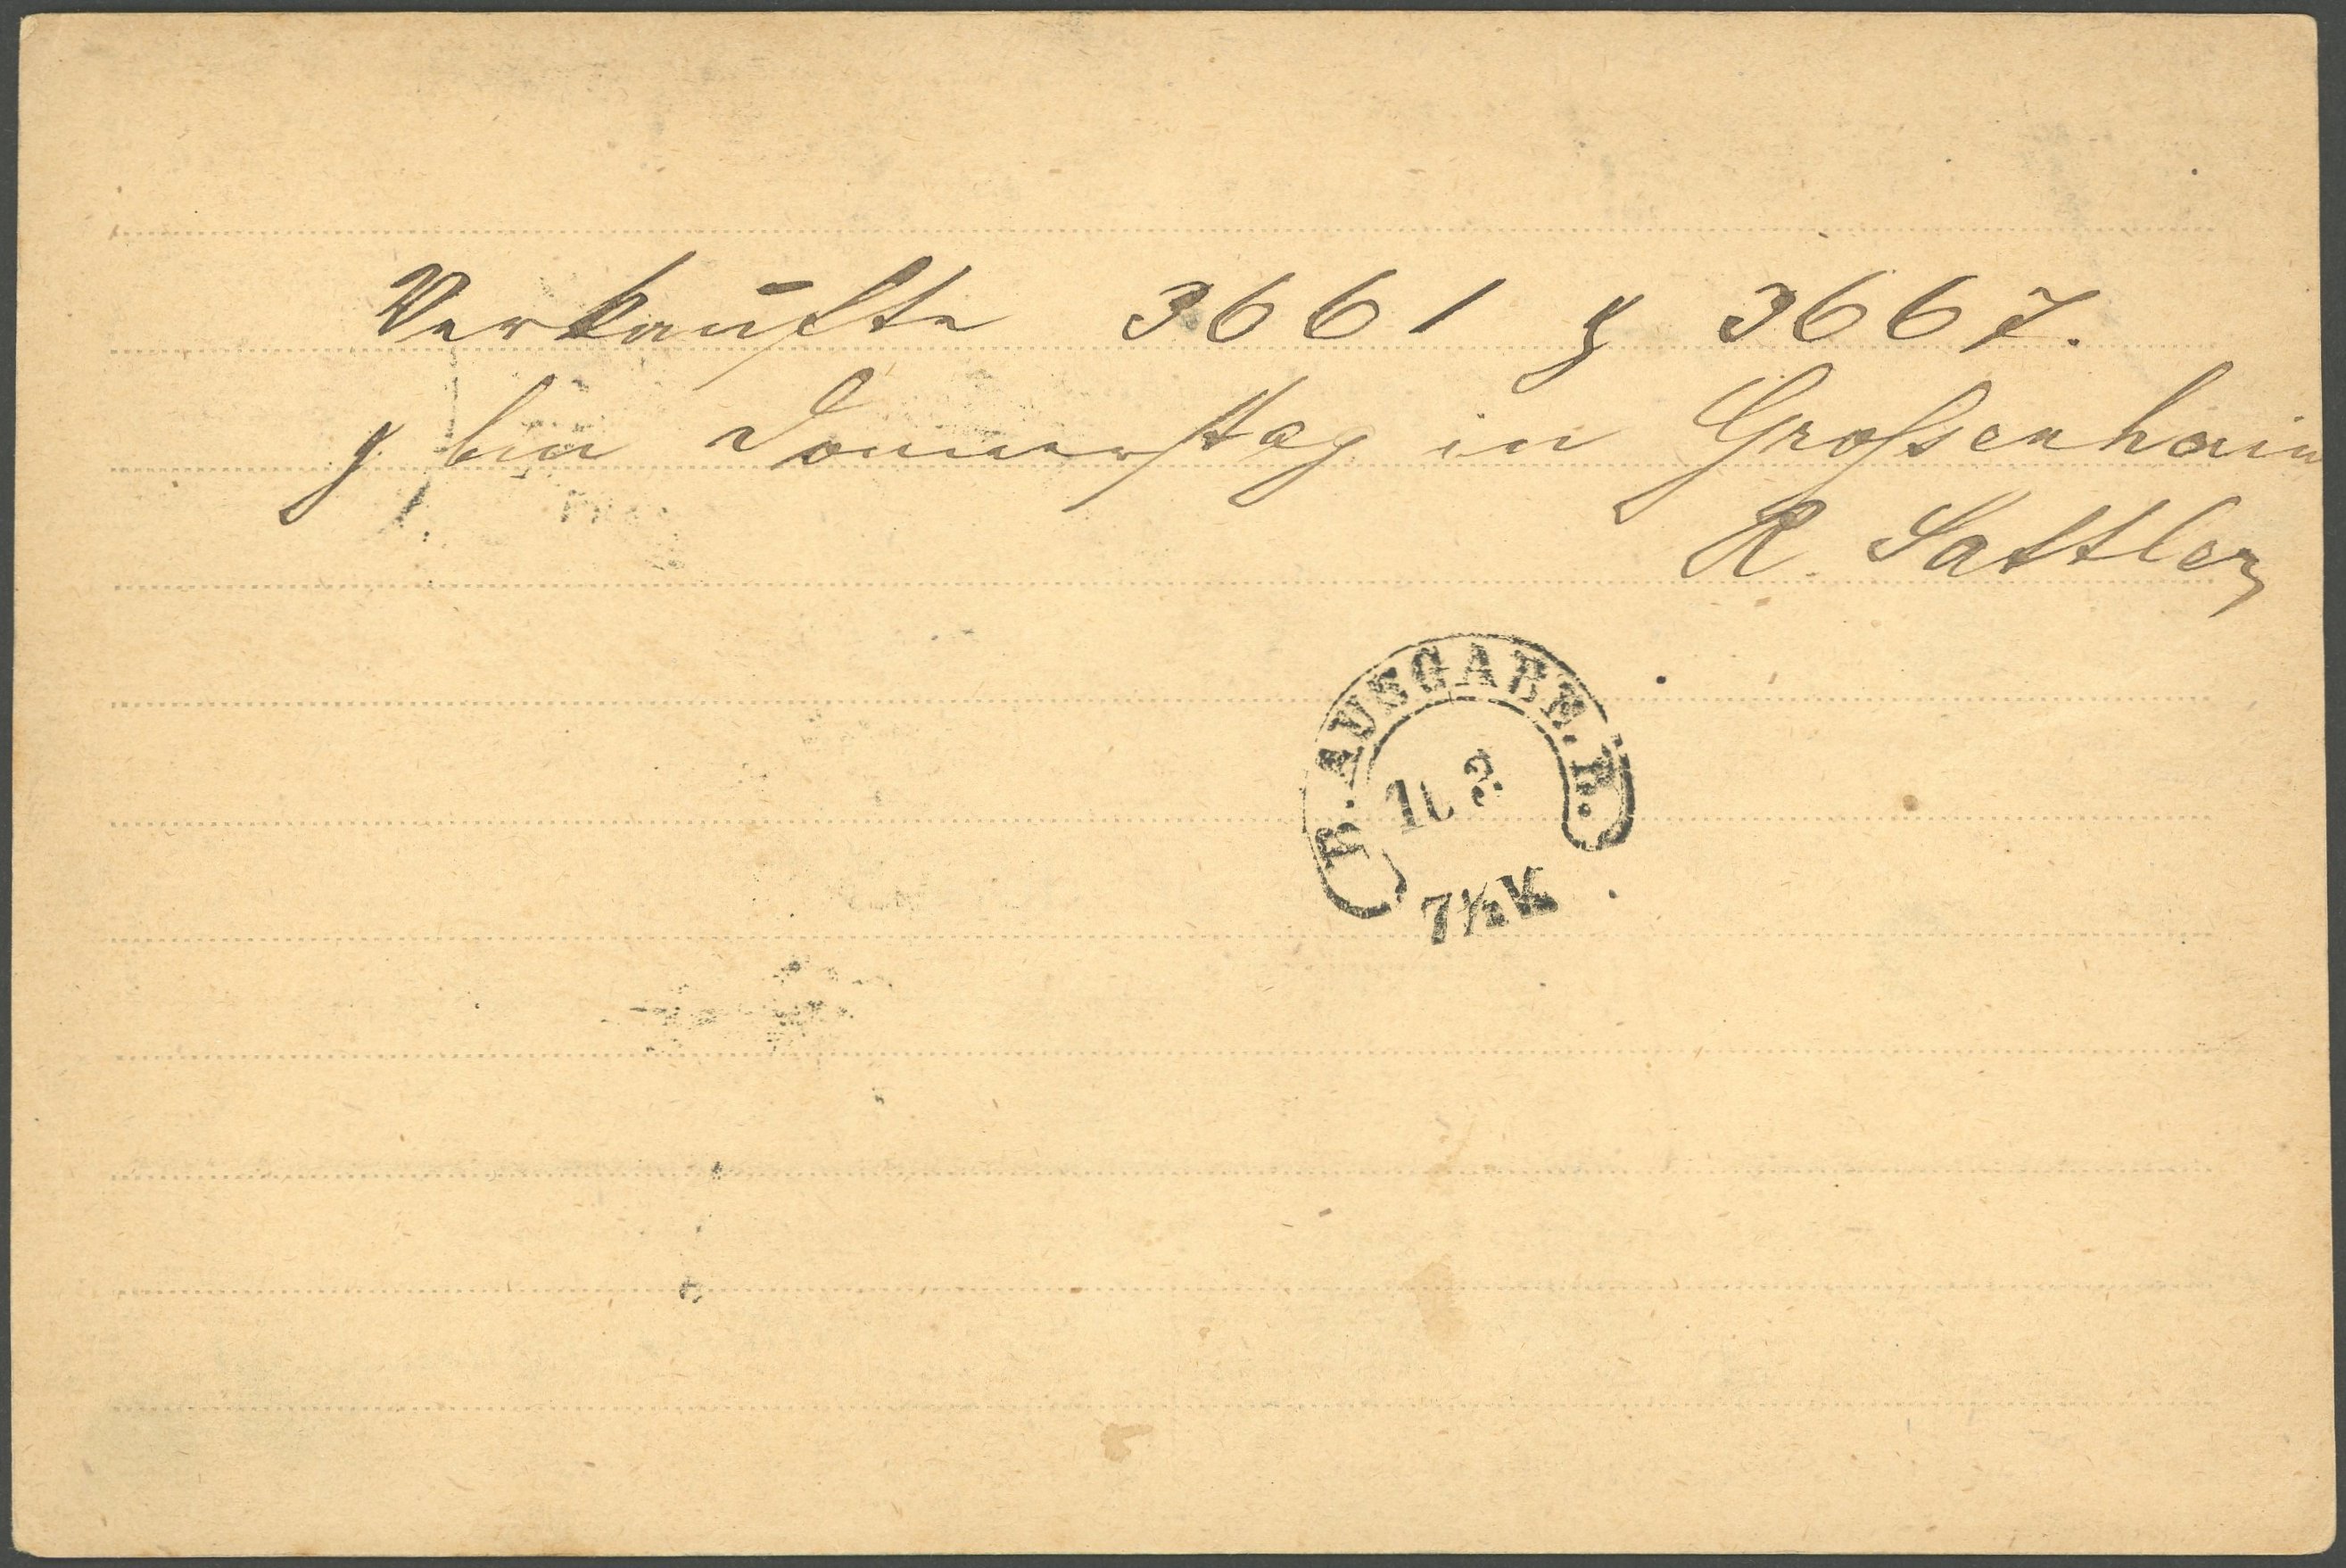 Verkaufte 3661 & 3667.
& bin Donnerstag in Grossenhain
R. Sattler
B. AUSGABE. B.
3.
7½